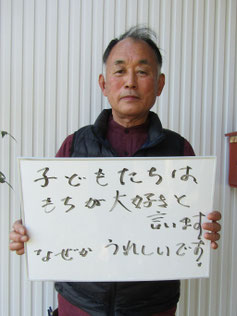 子どもたちは、
もちが大好きと
言います
なぜか うれしいです!